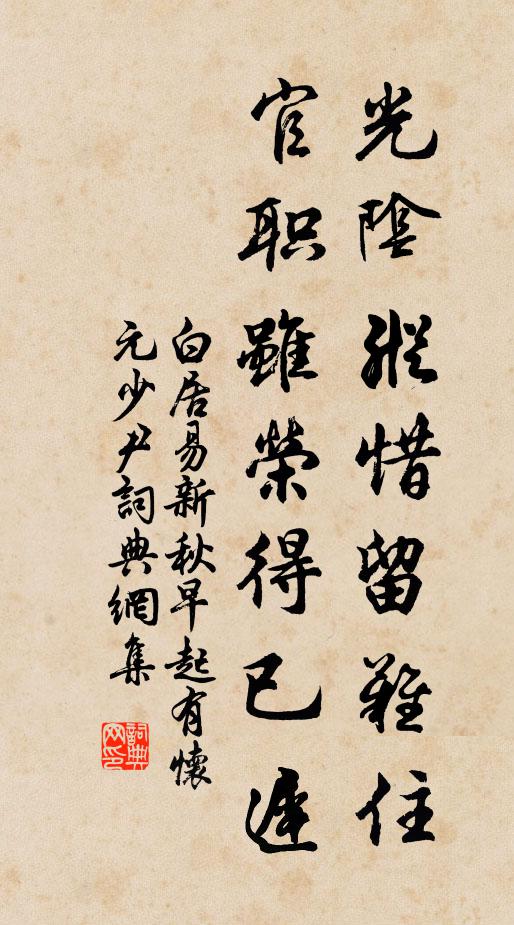 光陰縱惜留難住
官职雖榮得已遲
白居易新秋早起有懷
元少尹詞典網集
詞典
网印